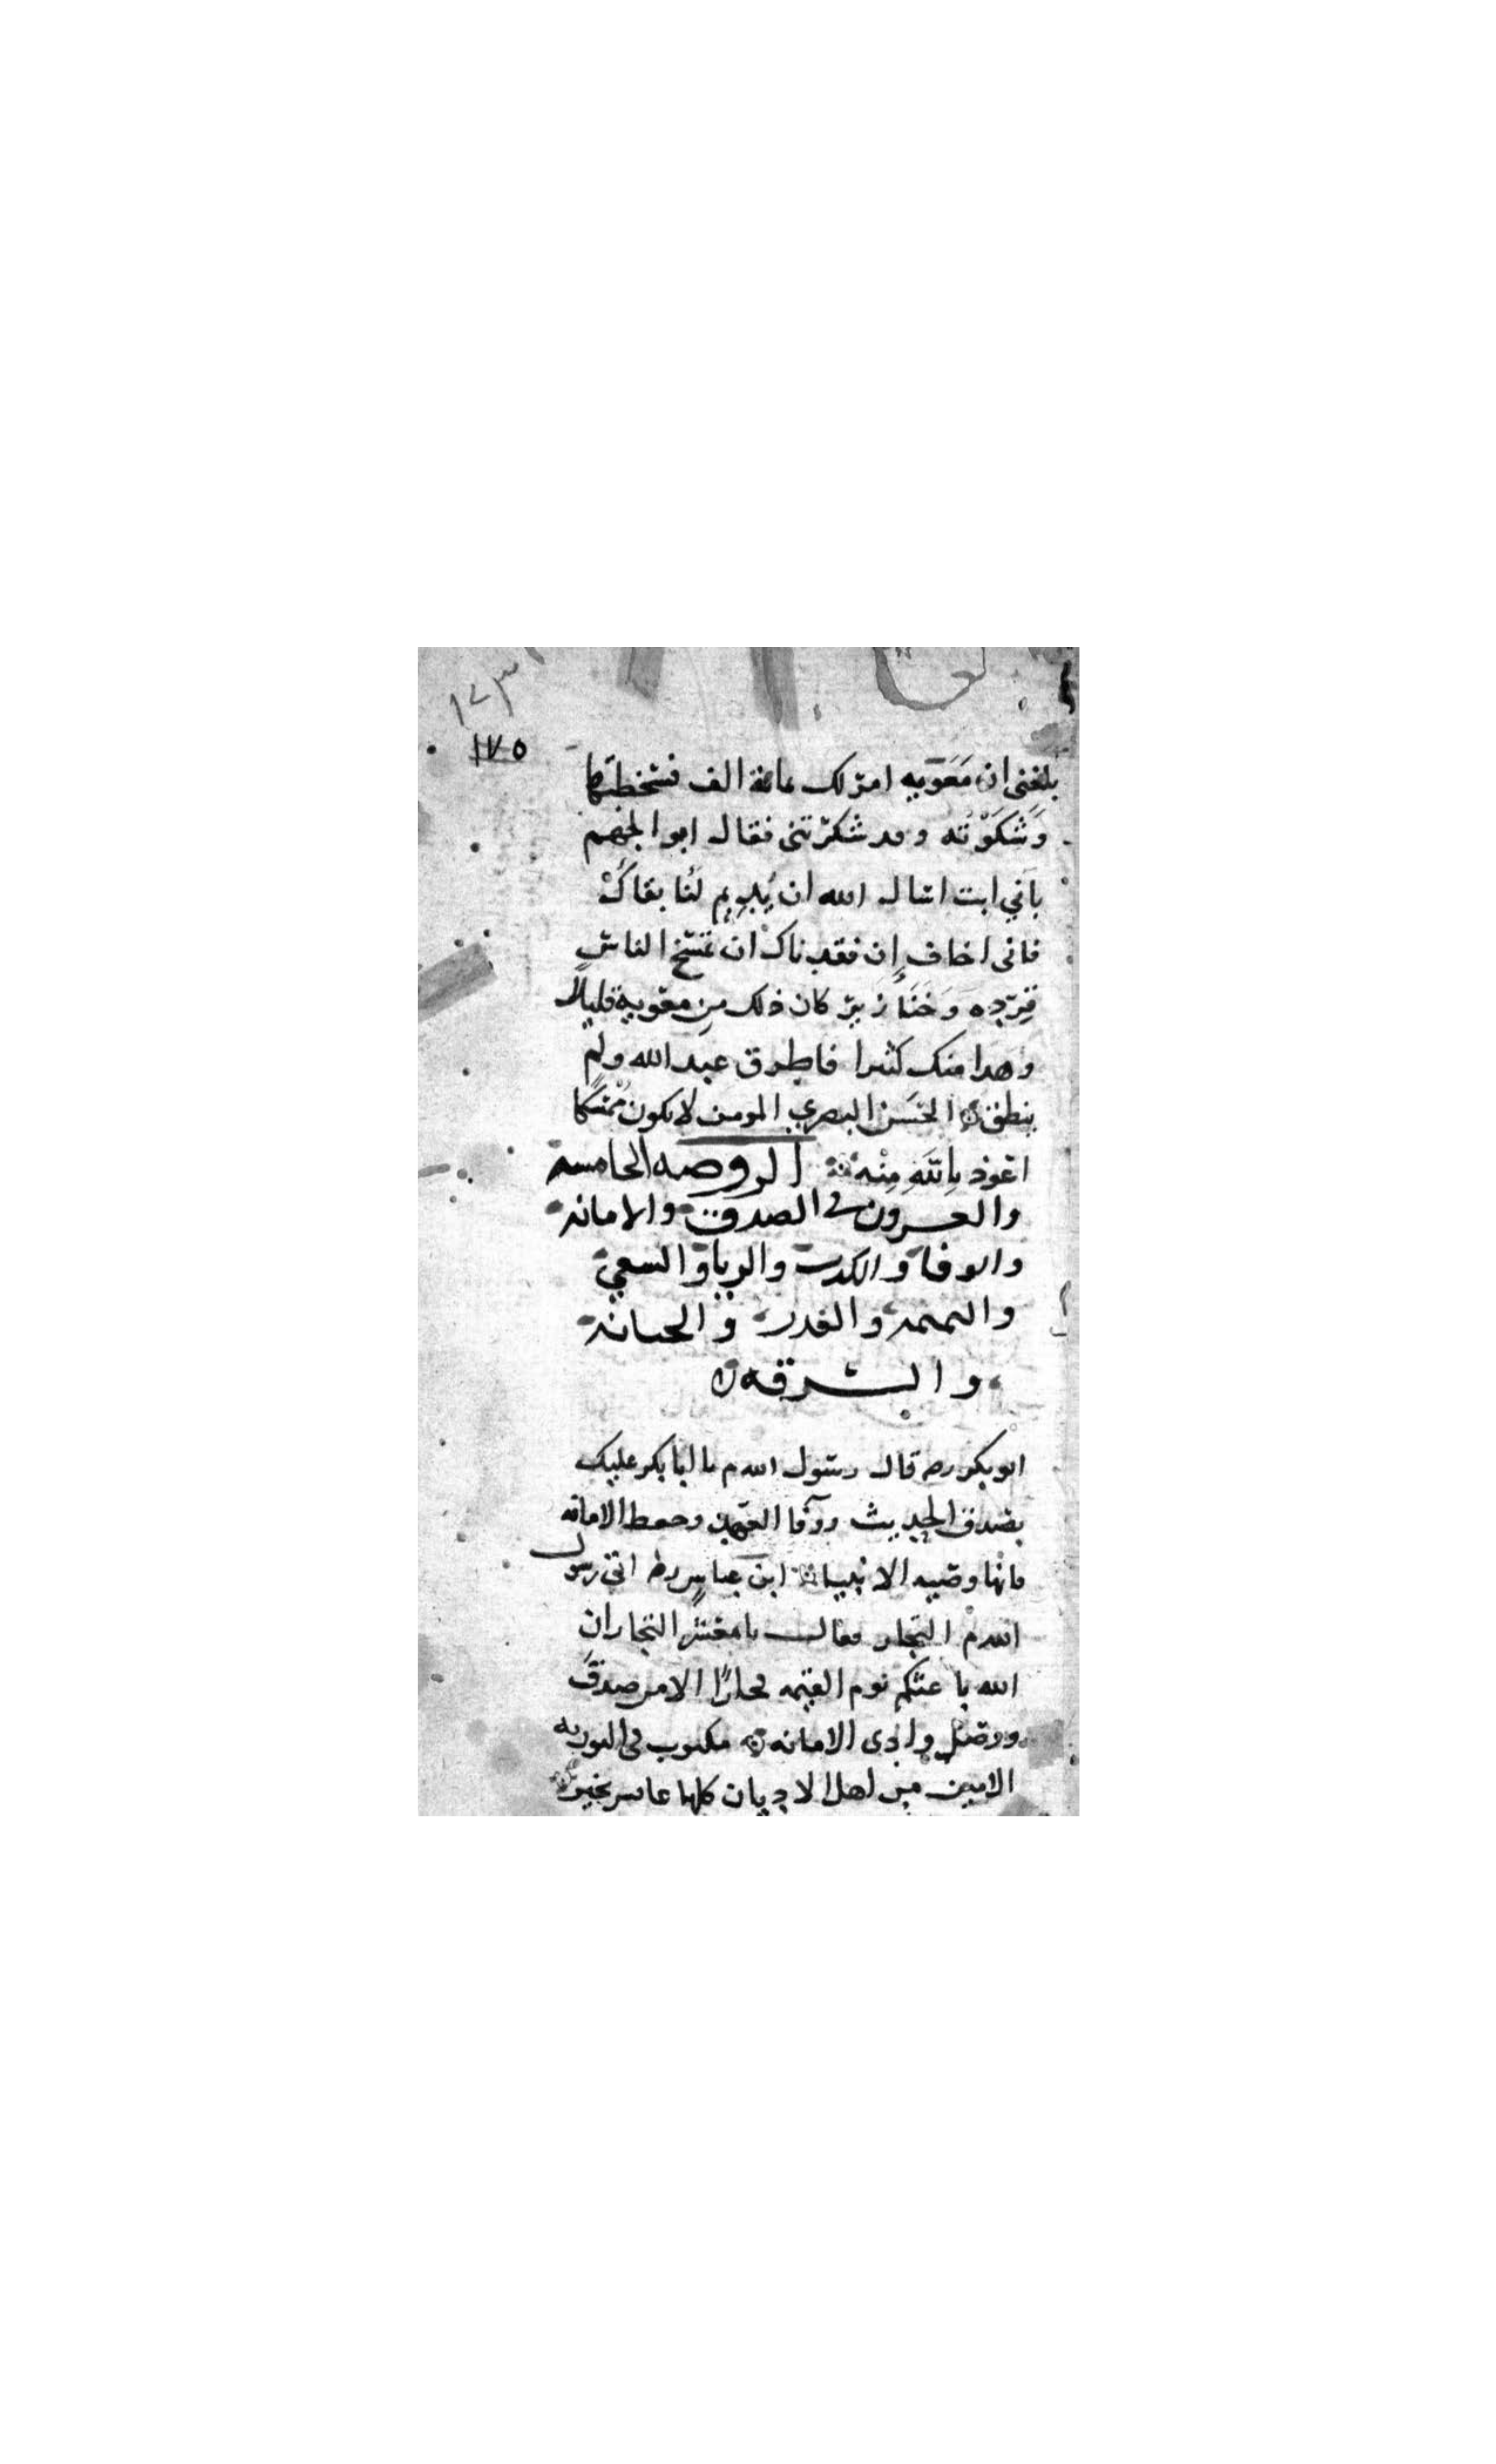 ١٧٣
١٧٥
بلغني ان مَعَويه امر لك بمائة الف فسخطتها
وَشكَوْته وقد شكرتني فقال ابو الجهم
بأبي انت اسال الله ان يُديم لَنا بقاكَ
فاني اخاف إن فقدناك ان تمسخ الناس
قِرَده وَخَنَازير كان ذلك من معويه قليلًا
وهذا منك كثيرا فاطرق عبد الله ولم
ينطق الحَسَن البصري المومن لا يكون مُمْسكًا
اعوذ بِاللهِ مِنْه الروضه الخامسه
والعسرون في الصدق والامانه
والوفا والكدب والريا والسعي
والنميمه والغدر والخيانه
والسرقه
ابو بكر رضه قال رسول الله م يا ابا بكر عليك
بصدق الحديث ووفا العهد وحفط الامانه
فانها وصيه الانبيا ابن عباس رضه اتى رسول
الله م التجار فقال يا معشر التجار ان
الله باعثكم يوم القيمه فجارًا الا من صدق
ووصل وادى الامانه مكتوب في التوريه
الامين من اهل الاديان كلها عايش بخير